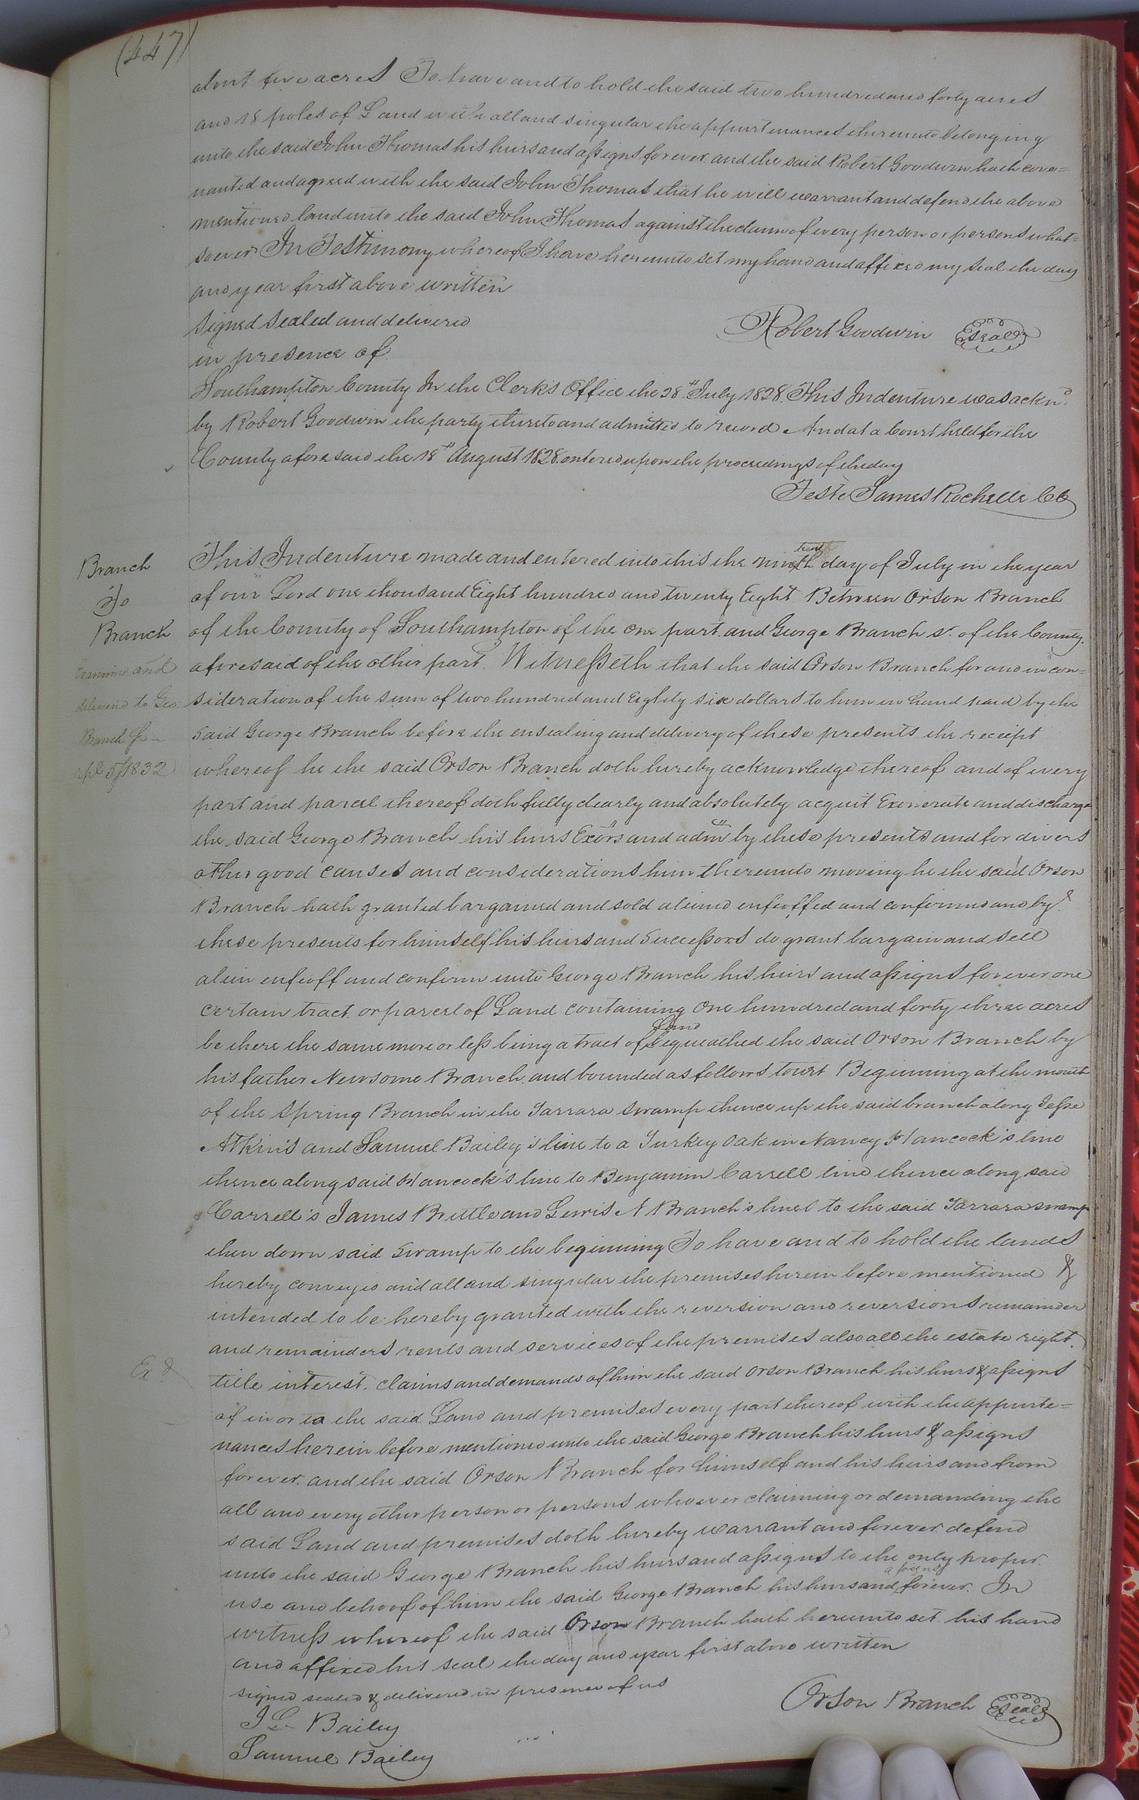 (447)
about five acres To have and to hold the said two hundred and forty acres
and 18 poles of Land with all and singular the appurtenances thereunto belonging
unto the said John Thomas his heirs and assigns forever and the said Robert Goodwin hath cove=
nanted and agreed with the said John Thomas that he will warrant and defend the above
mentioned land unto the said John Thomas against the claim of every person or persons what=
soever In Testimony whereof I have hereunto set my hand and affixed my seal the day
and year first above written
signed sealed and delivered
in presence of
Robert Goodwin Seal
Southampton County In the Clerk's Office the 28th July 1828 This Indenture was ackn'd
by Robert Goodwin the party thereto and admitted to record And at a Court held for the
County aforesaid the 18th August 1828 entered upon the proceedings of the day
Teste James Rochelle CC
Branch
To
Branch
Examined and
delivered to Geo
Branch
1832
Ex'd
This Indenture made and entered into this the ninth day of July in the year
of our Lord one thousand Eight hundred and twenty Eight Between Orson Branch
of the County of Southampton of the one part and George Branch sr. of the County
aforesaid of the other part. Witnesseth that the said Orson Branch for and in con=
sideration of the sum of two hundred and Eighty six dollars to him in hand paid by the
said George Branch before the ensealing and delivery of these presents the receipt
whereof he the said Orson Branch doth hereby acknowledge thereof and of every
part and parcel thereof doth fully clearly and absolutely acquit Exonerate and discharge
the said George Branch his heirs Exors and admrs by these presents and for divers
other good causes and considerations him thereunto moving he the said Orson
Branch hath granted bargained and sold aliened enfeoffed and confirmed and by
these presents for himself his heirs and Successors do grant bargain and sell
alien enfeoff and confirm unto George Branch his heirs and assigns forever one
certain tract or parcel of Land containing One hundred and forty three acres
be there the same more or less being a tract of Land bequeathed the said Orson Branch by
his father Newsome Branch and bounded as follows towit Beginning at the mouth
of the Spring Branch in the Tarrara Swamp thence up the said branch along Jesse
Atkins and Samuel Bailey's line to a Turkey Oak in Nancy Hancock's line
thence along said Hancock's line to Benjamin Carrell line thence along said
Carrell's James Brittle and Lewis N Branch's lines to the said Tarrara swamp
then down said swamp to the beginning To have and to hold the lands
hereby conveyed and all and singular the premises herein before mentioned &
intended to be hereby granted with the reversion and reversions remainder
and remainders rents and services of the premises also all the estate right
title interest. claims and demands of him the said Orson Branch his heirs & assigns
of in or to the said Land and premises every part thereof with the appurte=
nances herein before mentioned unto the said George Branch his heirs & assigns
forever. and the said Orson Branch for himself and his heirs and from
all and every other person or persons whoever claiming or demanding the
said Land and premises doth hereby warrant and forever defend
unto the said George Branch his heirs and assigns to the only proper
use and behoof of him the said George Branch his heirs and assigns forever. In
witness whereof the said Orson Branch hath hereunto set his hand
and affixed his seal the day and year first above written
signed sealed & delivered in presence of us
Orson Branch Seal
J Bailey
Samuel Bailey